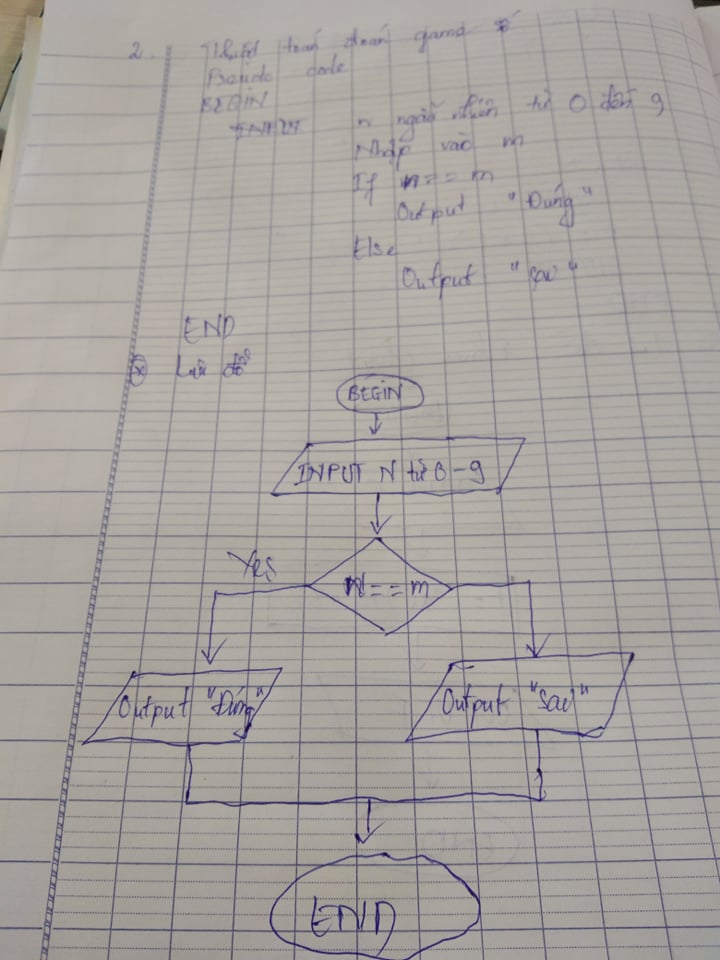 2. Thuật toán đoán game số
Pseudo code
BEGIN
INPUT n ngẫu nhiên từ 0 đến 9
Nhập vào m
If n == m
Output "Đúng"
Else
Output "Sai"
END
* Lưu đồ
BEGIN
INPUT N từ 0 - 9
N == m
Yes
Output "Đúng"
Output "Sai"
END